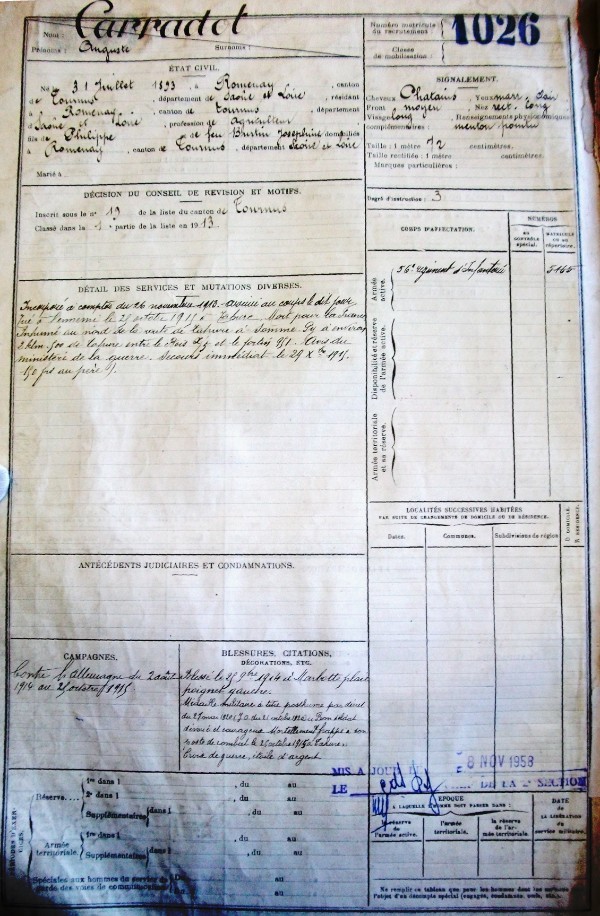 Nom : Carradot
Prénoms : Auguste Surnoms :
Numéro matricule du recrutement : 1026
Classe de mobilisation :
ÉTAT CIVIL.
Né le 31 Juillet 1893, à Romenay, canton
de Tournus, département de Saône et Loire, résidant
à Romenay, canton de Tournus, département
Saône et Loire, profession de Agriculteur
fils de Philippe et de feu Joséphine domiciliés
à Romenay, canton de Tournus, département Saône et Loire
Marié à
SIGNALEMENT.
Cheveux Chatains, Yeux clair
Front moyen, Nez rect. long
Visage long Renseignements physionomiques
complémentaires : menton pointu
Taille : 1 mètre 72 centimètres.
Taille rectifiée : 1 mètre centimètres.
Marques particulières :
Degré d'instruction : 3
DÉCISION DU CONSEIL DE REVISION ET MOTIFS.
Inscrit sous le n° 19 de la liste du canton de Tournus
Classé dans la 1e partie de la liste en 1913.
DÉTAIL DES SERVICES ET MUTATIONS DIVERSES.
Incorporé à compter du 26 novembre 1913.
Tué à l'ennemi le 25 octobre 1915 à Tahure. Mort pour la France
Inhumé au nord de la route de Tahure à Somme Py à environ
ministère de la guerre. Secours immédiat le 29 Xbre 1915.
150 frs au père
CORPS D'AFFECTATION.
NUMÉROS
AU CONTRÔLE SPÉCIAL.
MATRICULE OU AU RÉPERTOIRE.
Armée active.
56e régiment d'Infanterie
Disponibilité et réserve de l'armée active.
Armée territoriale et sa réserve.
LOCALITÉS SUCCESSIVES HABITÉES
PAR SUITE DE CHANGEMENTS DE DOMICILE OU DE RÉSIDENCE.
Dates. Communes. Subdivisions de région D. DOMICILE. R. RÉSIDENCE.
ANTÉCÉDENTS JUDICIAIRES ET CONDAMNATIONS.
CAMPAGNES.
Contre l'Allemagne du 2 août
1914 au 25 octobre 1915
BLESSURES, CITATIONS,
DÉCORATIONS, ETC.
Blessé le 9bre 1914 à Marbotte plaie
poignet gauche.
Médaille militaire à titre posthume par décret
Bon soldat
dévoué et courageux Mortellement frappé à son
poste de combat le 25 octobre 1915 à Tahure.
Croix de guerre, étoile d'argent
MIS A JOUR
8 NOV 1958
LE DE LA SECTION
Réserve....
1re dans l , du au
2e dans l , du au
Supplémentaires dans l , du au
Armée territoriale.
1re dans l , du au
Supplémentaires dans l , du au
Spéciales aux hommes du service de garde des voies de communication
Du au
Du au
ÉPOQUE
À LAQUELLE L'HOMME DOIT PASSER DANS :
la réserve de l'armée active.
l'armée territoriale.
la réserve de l'armée territoriale.
DATE de LA LIBÉRATION du service militaire.